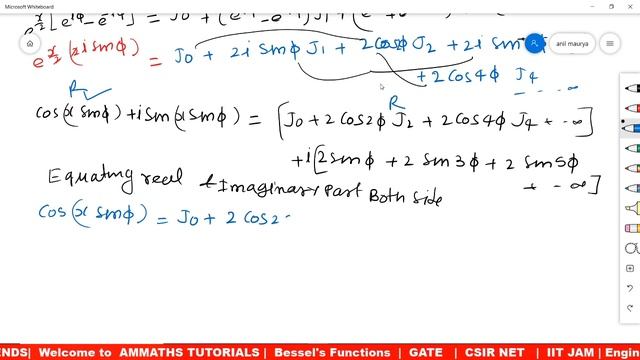 Microsoft Whiteboard
e^{x/2}[e^{iϕ} - e^{-iϕ}] = J₀ +
e^{x/2}(2i sinϕ) = J₀ + 2i sinϕ J₁ + 2cos ϕ J₂ + 2i sin
anil maurya
+ 2 cos 4ϕ J₄
- - - ∞
R
R
cos(x sinϕ) + i sin(x sinϕ) = [J₀ + 2 cos2ϕ J₂ + 2 cos4ϕ J₄ + - - ∞]
+ i[2 sinϕ + 2 sin 3ϕ + 2 sin 5ϕ
+ - - ∞]
Equating reel & Imaginary Part Both side
cos(x sinϕ) = J₀ + 2 cos2
ENDS| Welcome to AMMATHS TUTORIALS | Bessel's Functions | GATE | CSIR NET | IIT JAM | Engin